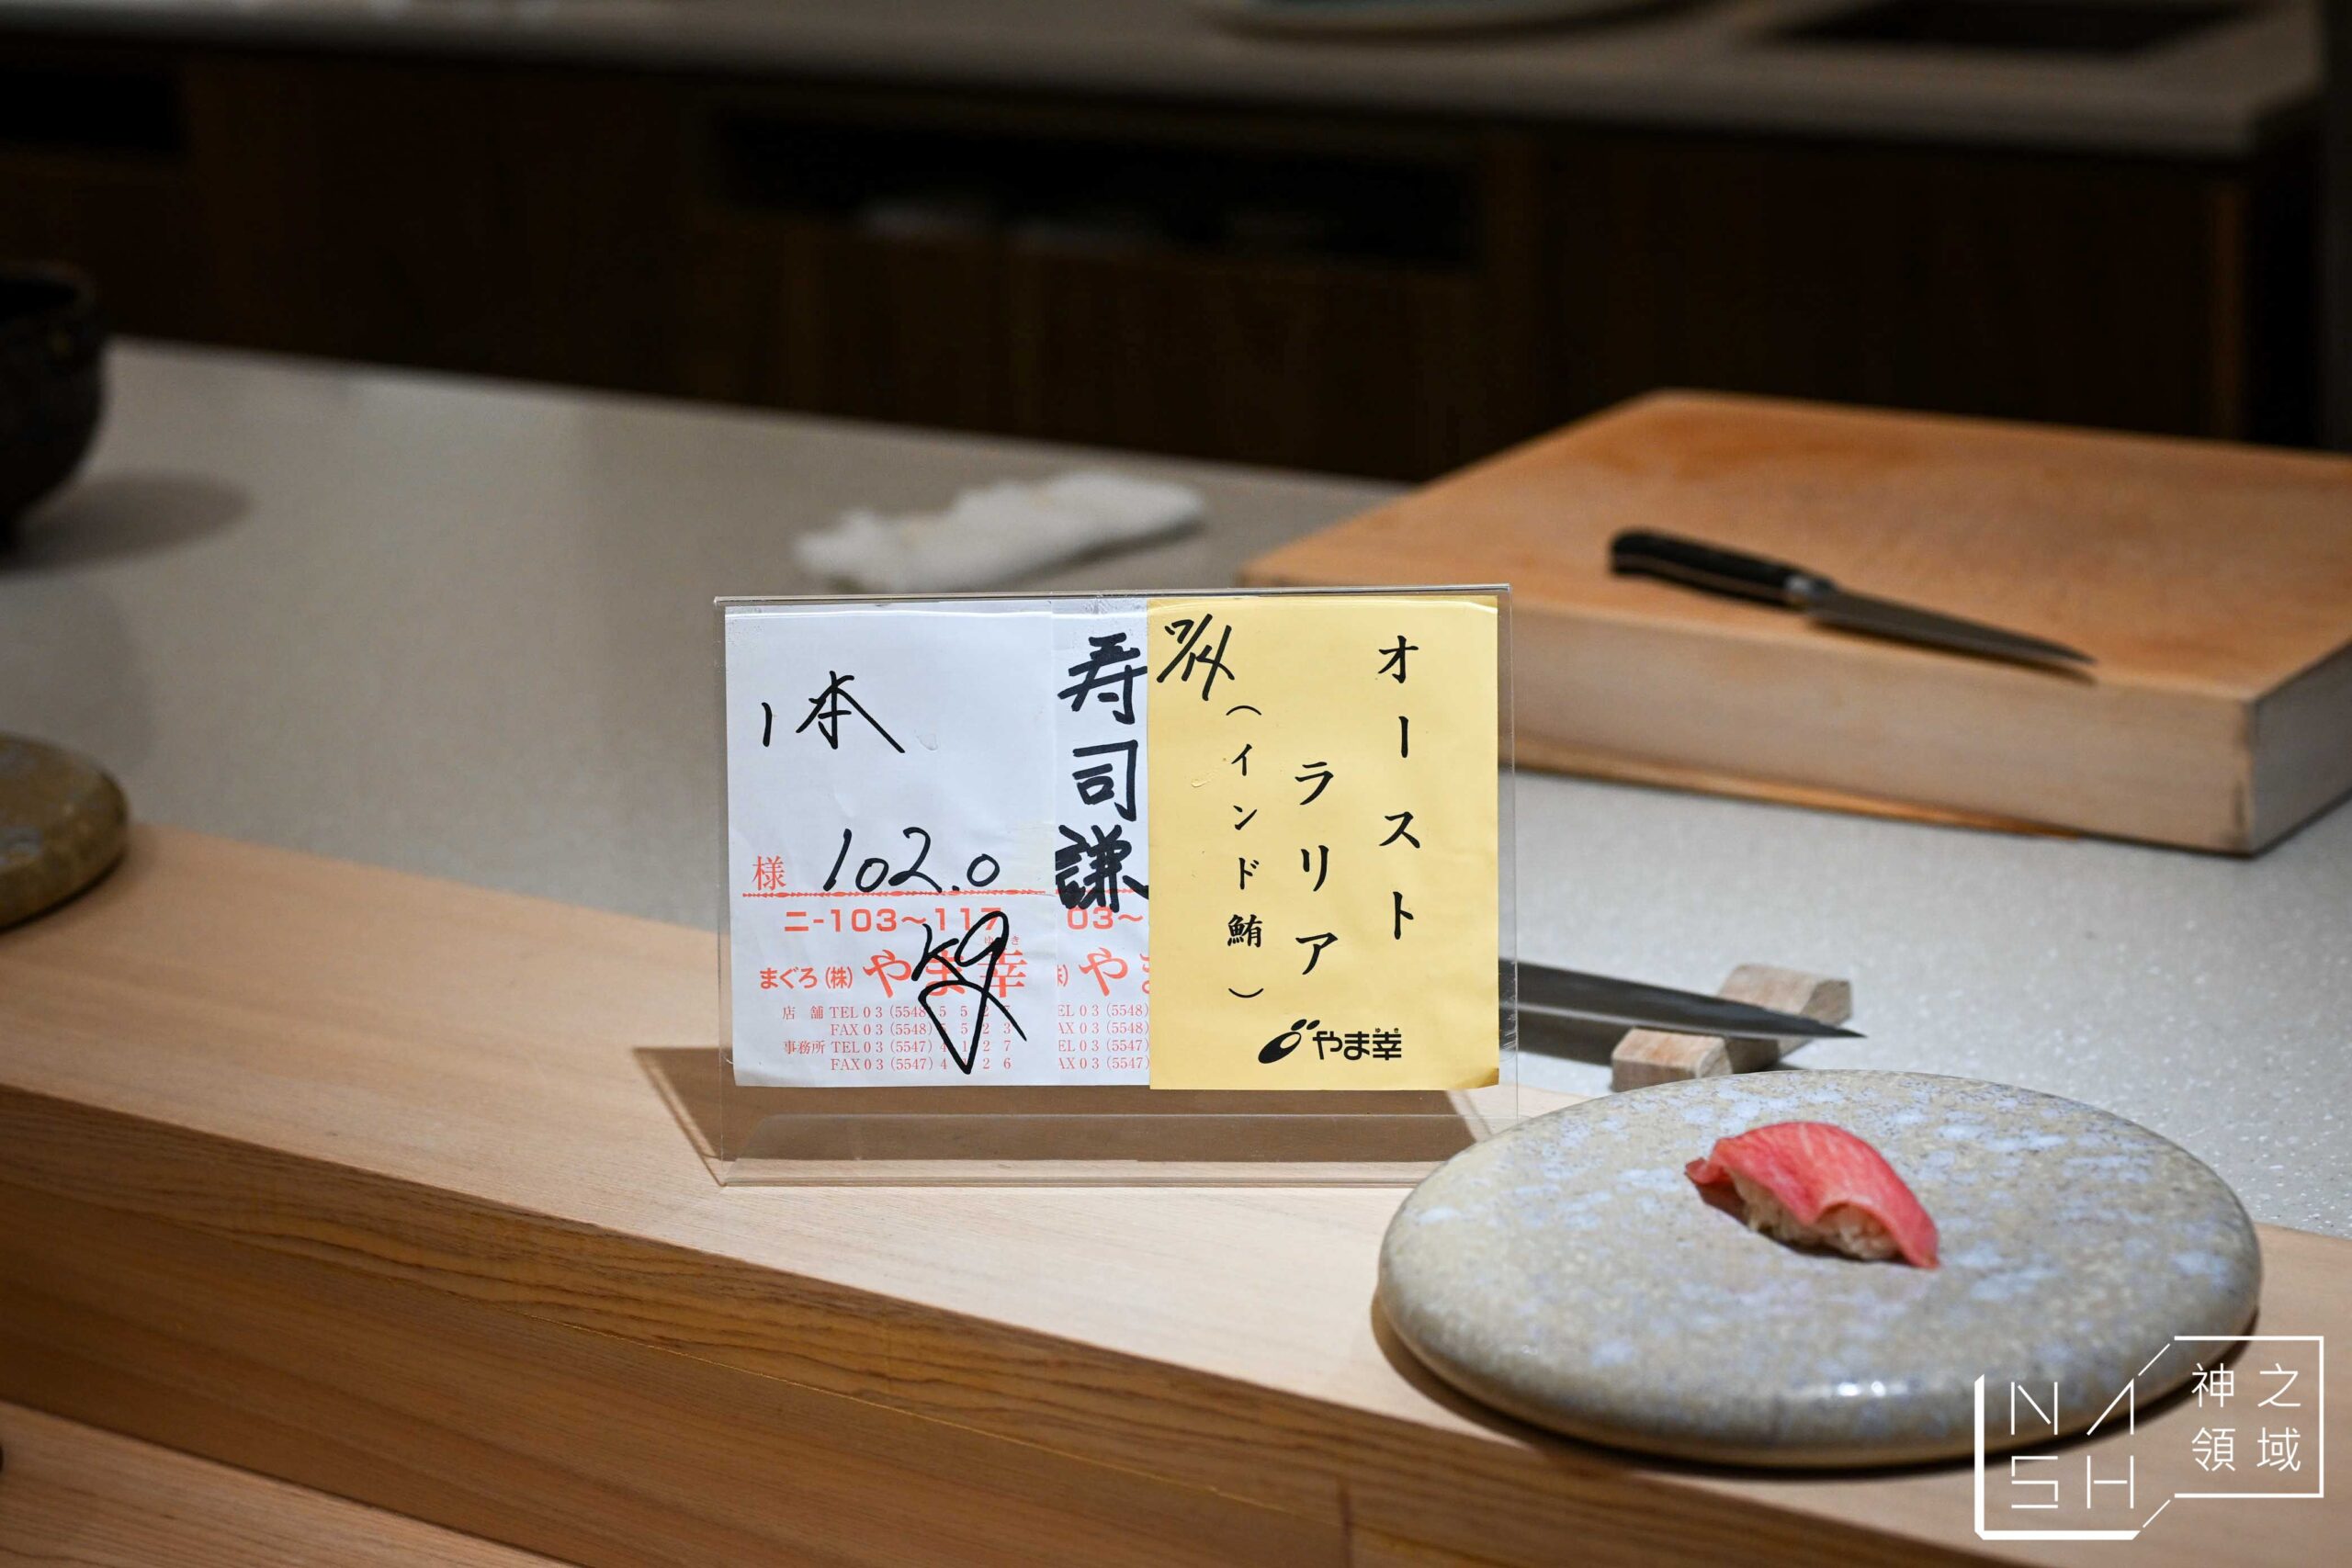 1本
102.0
kg
様
ニ-103〜117
まぐろ(株)やま幸
ゆき
店舗 TEL 03 (5548) 5 5 2
FAX 03 (5548) 5 5 2 3
事務所 TEL 03 (5547) 4 1 2 7
FAX 03 (5547) 4 2 6
寿司謙
03〜
やま
EL 03 (5548)
AX 03 (5548)
EL 03 (5547)
AX 03 (5547)
7/14
オースト
ラリア
(インド鮪)
やま幸
NASH
神之領域